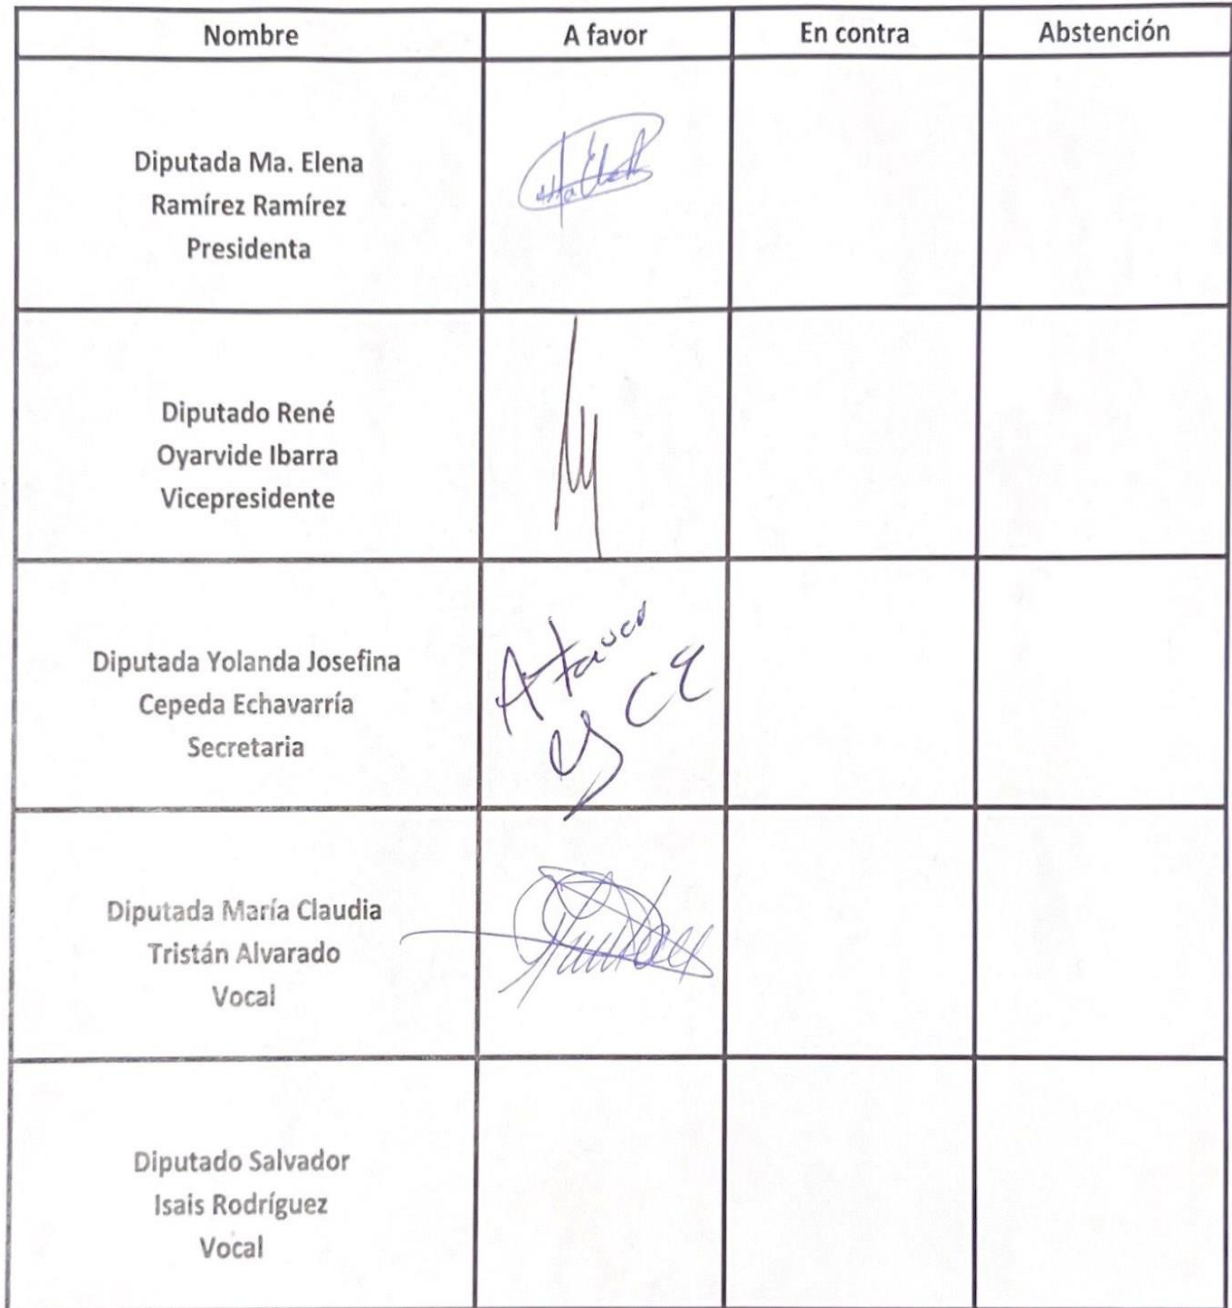 Nombre A favor En contra Abstención
Diputada Ma. Elena
Ramírez Ramírez
Presidenta
Diputado René
Oyarvide Ibarra
Vicepresidente
Diputada Yolanda Josefina
Cepeda Echavarría
Secretaria
A favor
Diputada María Claudia
Tristán Alvarado
Vocal
Diputado Salvador
Isais Rodríguez
Vocal